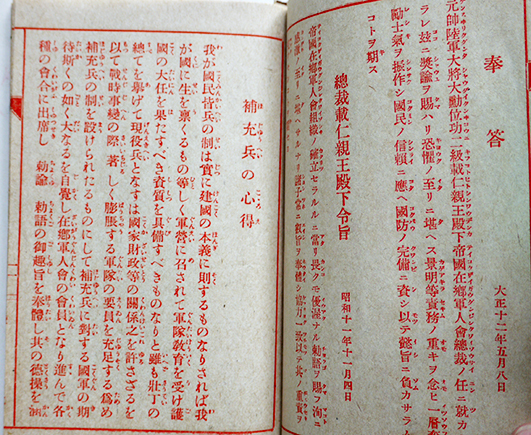 大正十二年五月八日
奉答
元帥陸軍大將大勳位功二級載仁親王殿下帝國在鄕軍人會總裁ノ任ニ就カ
ラレ玆ニ奬諭ヲ賜ハリ恐懼ノ至リニ堪ヘス景明等責務ノ重キヲ念ヒ一層奮
勵士氣ヲ振作シ國民ノ信賴ニ應ヘ國防ノ完備ニ資シ以テ懿旨ニ負カサラム
コトヲ期ス
總裁載仁親王殿下令旨
昭和十一年十一月四日
帝國在鄕軍人會組織ノ確立セラルルニ當リ畏クモ優渥ナル勅語ヲ賜フ洵ニ
感激ノ至リニ堪ヘサルナリ
補充兵の心得
我が國民皆兵の制は實に建國の本義に則するものなりされば我
が國に生を稟くるもの等しく軍營に召されて軍隊敎育を受け護
國の大任を果たすべき資質を具備すべきものなりと雖も壯丁の
總てを擧げて現役兵となすは國家財政等の關係之を許さざるを
以て戰時事變の際、著しく膨脹する軍隊の要員を充足する爲め
補充兵の制を設けられたるものにして補充兵に對する國軍の期
待斯くの如く大なるを自覺し在鄕軍人會の會員となり進んで各
種の會合に出席し 勅諭 勅語の御趣旨を奉體し其の德操を